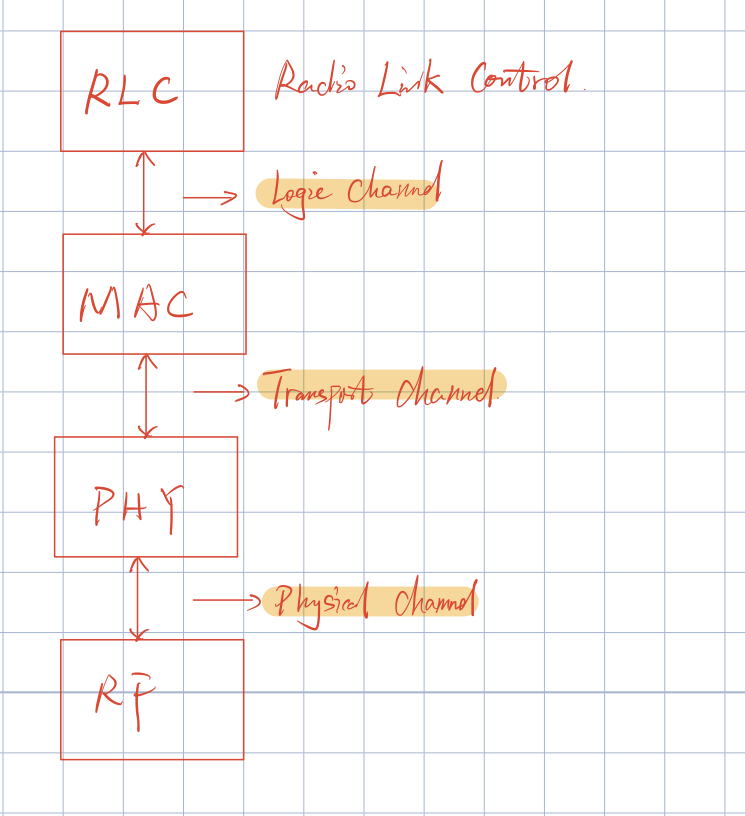 RLC Radio Link Control.
Logic Channel
MAC
Transport Channel.
PHY
Physical Channel
RF